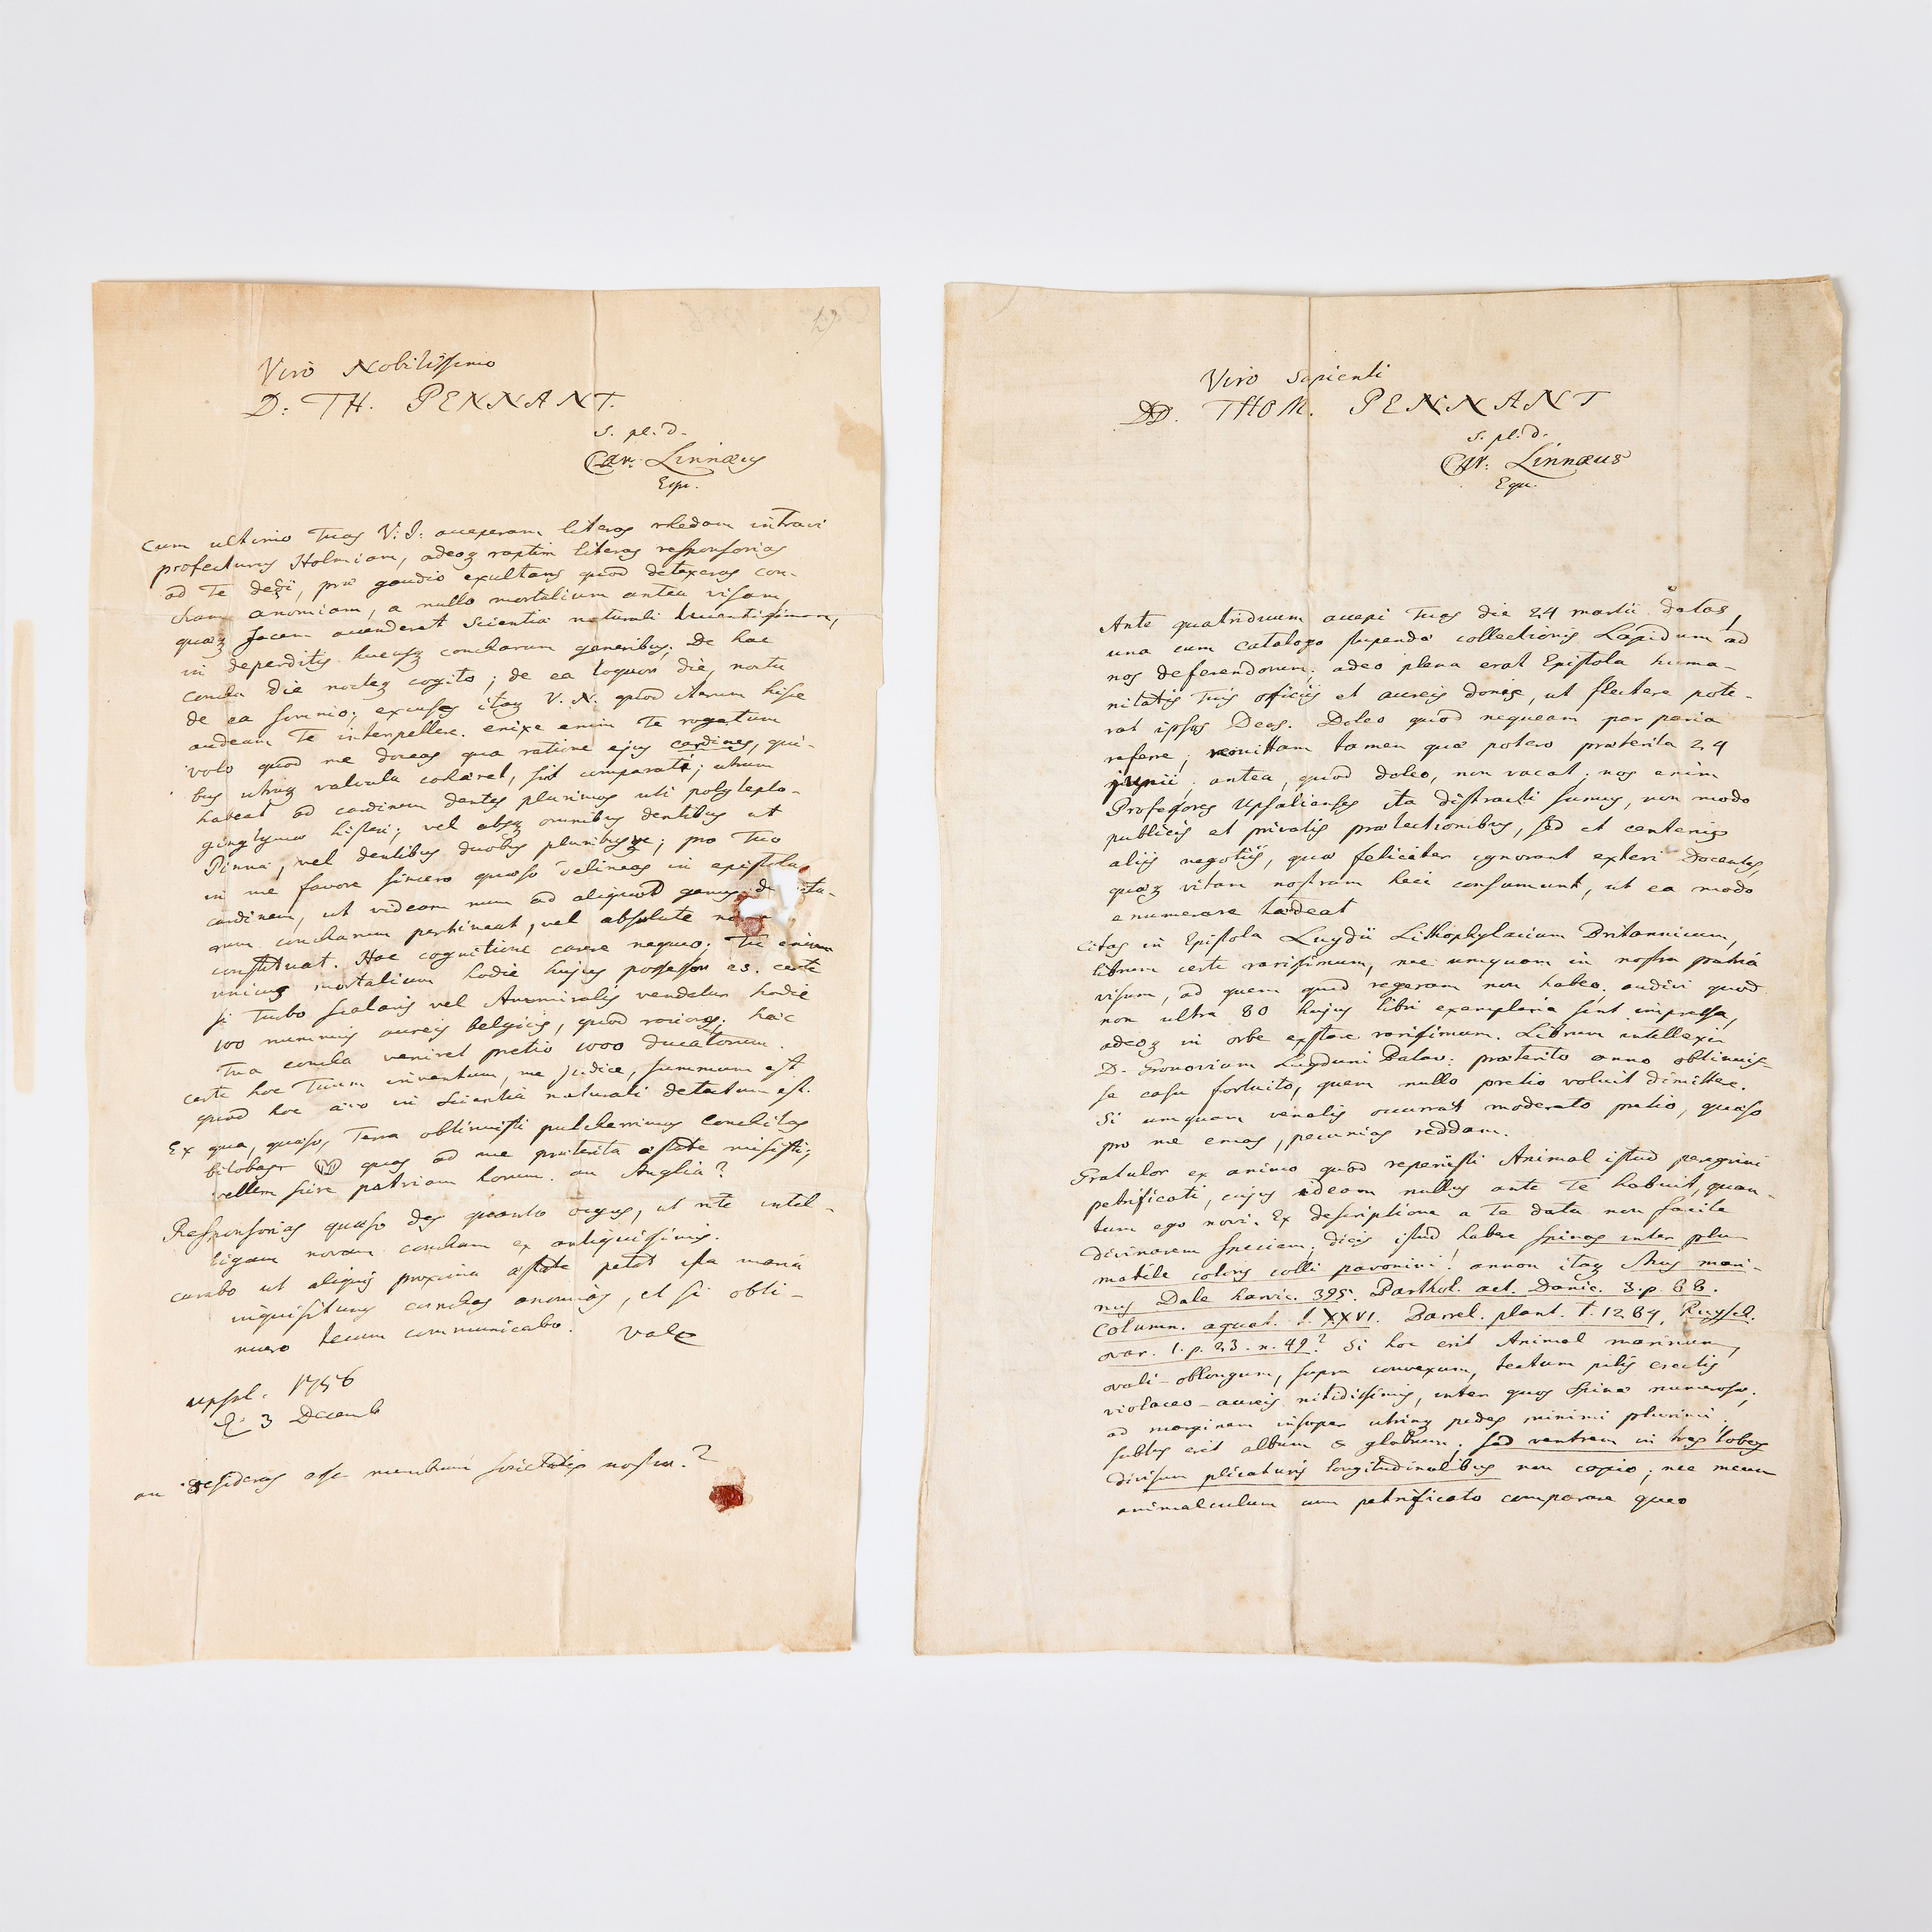 Viro Nobilissimo
D: TH. PENNANT.
s. pl. d.
Car. Linnæus
Equ.
Cum ultimo Tuas V: I: acceperam literas rhedam intravi
profecturus Holmiam, adeoq raptim literas responsorias
ad Te dedi, præ gaudio exultans quod detexeras con-
cham anomiam, a nullo mortalium antea visam,
quæq facem accenderet Scientiæ naturali
in deperditis hucusq concharum generibus. De hac
concha die nocteq cogito; de ea loquor die, noctu
de ea somnio; excuses itaq V. N. quod iterum hisce
audeam Te interpellere. enixe enim Te rogatum
volo quod me doceas qua ratione ejus cardines, qui-
bus utraq valvula cohæret, sint comparati; utrum
habeat ad cardinem dentes plurimos uti polylepto-
ginglymo Listeri; vel absq omnibus dentibus ut
Pinna, vel dentibus duobus pluribusve; pro Tuo
in me favore sincero quæso delineas in epistola
cardinem, ut videam num ad aliquod genus
rum concharum pertineat, vel absolute
constituat. Hac cognitione carere nequeo. Tu enim
unicus mortalium hodie hujus possessor es. certe
si Turbo scalaris vel Ammiralis vendatur hodie
100 nummis aureis belgicis, quod rarior, hæc
Tua concha veniret pretio 1000 ducatorum.
certe hoc Tuum inventum, me judice, summum est
quod hoc ævo in Scientia naturali detectum est.
Ex qua, quæso, Terra obtinuisti pulcherrimos Conchitas
bilobos quas ad me præterita æstate misisti;
vellem scire patriam horum. an Anglia?
Responsorias quæso des quanto ocyus, ut rite intel-
ligam novam concham ex antiquissimis.
curabo ut aliquis proxima æstate petat ista maria
inquisiturus conchas anomias, et si obti-
nuero tecum communicabo. Vale
Upsal. 1756
d. 3 Decemb
an desideras esse membrum societatis nostræ?
Viro Sapienti
DD. THOM. PENNANT
s. pl. d.
Car: Linnæus
Equ.
Ante quatriduum accepi Tuas die 24 martii datas,
una cum catalogo stupendæ collectionis Lapidum ad
nos deferendorum; adeo plena erat Epistola huma-
nitatis Tuis officiis et aureis donis, ut flectere pote-
rat ipsos Deos. Doleo quod nequeam par pari
referre; remittam tamen quæ potero præterita 24
junii; antea, quod doleo, non vacat; nos enim
Professores Upsalienses ita distracti sumus, non modo
publicis et privatis prælectionibus, sed et centenis
aliis negotiis, quæ feliciter ignorant exteri Docentes,
quæq vitam nostram heic consumunt, ut ea modo
enumerare tædeat
Citas in Epistola Luydii Lithophylacium Britannicum,
librum certe rarissimum, nec umquam in nostra patria
visum, ad quem quod regeram non habeo; audivi quod
non ultra 80 hujus libri exemplaria sint impressa,
adeoq in orbe exstare rarissimum. Librum intellexi
D. Gronovium Lugduni Batav: præterito anno obtinuis-
se casu fortuito, quem nullo pretio voluit dimittere.
Si umquam venalis occurrat moderato pretio, quæso
pro me emas, pecunias reddam.
Gratulor ex animo quod reperiisti Animal istud peregrini
petrificati, cujus ideam nullus ante Te habuit, quan-
tum ego novi. Ex descriptione a Te data non facile
divinarem speciem; dicis istud habere spinas inter plu
mabile coloris colli pavonini! annon itaq Mus mari-
nus Dale harvic. 395. Barthol. act. Danic. 3. p. 88.
Column. aquat. t. XXVI. Barrel. plant. t. 1284, Ruysch.
ovar. 1. p. 23. n. 49? Si hoc erit Animal marinum,
ovali-oblongum, supra convexum, tectum pilis erectis
violaceo-aureis nitidissimis, inter quos spinæ numerosæ;
ad marginem insuper utrinq pedes minimi plurimi.
subtus erit album & glabrum; sed ventrem in tres lobos
divisum plicaturis longitudinalibus non capio; nec meum
animalculum cum petrificato comparare queo